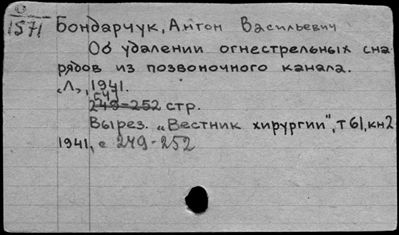 О
1571
Бондарчук, Антон Васильевич
Об удалении огнестрельных сна
рядов из позвоночного канала.
„Л", 1941.
249-252 стр.
Вырез. „Вестник хирургии", т 61, кн2
1941, с 249-252